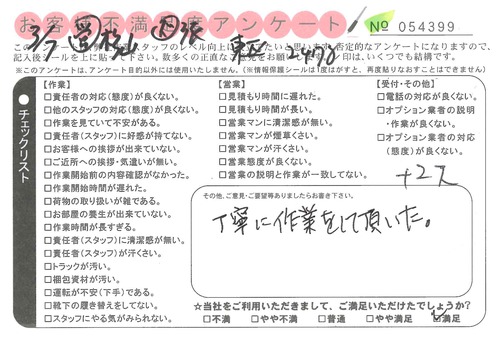 お客様不満足度アンケート
№ 054399
3/7
2470
※このアンケートは、アンケート目的以外には使用いたしません。(※情報保護シール1度はがすと、再度貼りなおすことはできません)
チェックリスト
【作業】
□責任者の対応(態度)が良くない。
□他のスタッフの対応(態度)が良くない。
□作業を見ていて不安がある。
□責任者(スタッフ)に好感が持てない。
□お客様への挨拶が出来ていない。
□ご近所への挨拶・気遣いが無い。
□作業開始前の内容確認がなかった。
□作業開始時間が遅れた。
□荷物の取り扱いが雑である。
□お部屋の養生が出来ていない。
□作業時間が長すぎる。
□責任者(スタッフ)に清潔感が無い。
□責任者(スタッフ)が汗くさい。
□トラックが汚い。
□梱包資材が汚い。
□運転が不安(下手)である。
□靴下の履き替えをしてない。
□スタッフにやる気がみられない。
【営業】
□見積もり時間に遅れた。
□見積もり時間が長い。
□営業マンに清潔感が無い。
□営業マンが煙草くさい。
□営業マンが汗くさい。
□営業態度が良くない。
□営業の説明と作業が一致してない。
【受付・その他】
□電話の対応が良くない。
□オプション業者の説明
・作業が良くない。
□オプション業者の対応
(態度)が良くない。
その他、ご意見・ご要望等ありましたらお書き下さい。
丁寧に作業をして頂いた。
☆当社をご利用いただきまして、ご満足いただけたでしょうか?
□不満 □やや不満 □普通 □やや満足 ☑満足